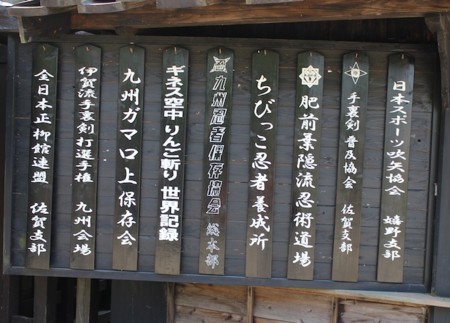 日本スポーツ吹矢協会 嬉野支部
手裏剣普及協会 佐賀支部
肥前葉隠流忍術道場
ちびっこ忍者養成所
九州忍者保存協会 総本部
ギネス空中りんご斬り世界記録
九州ガマ口上保存会
伊賀流手裏剣打選手権 九州会場
全日本正柳館連盟 佐賀支部